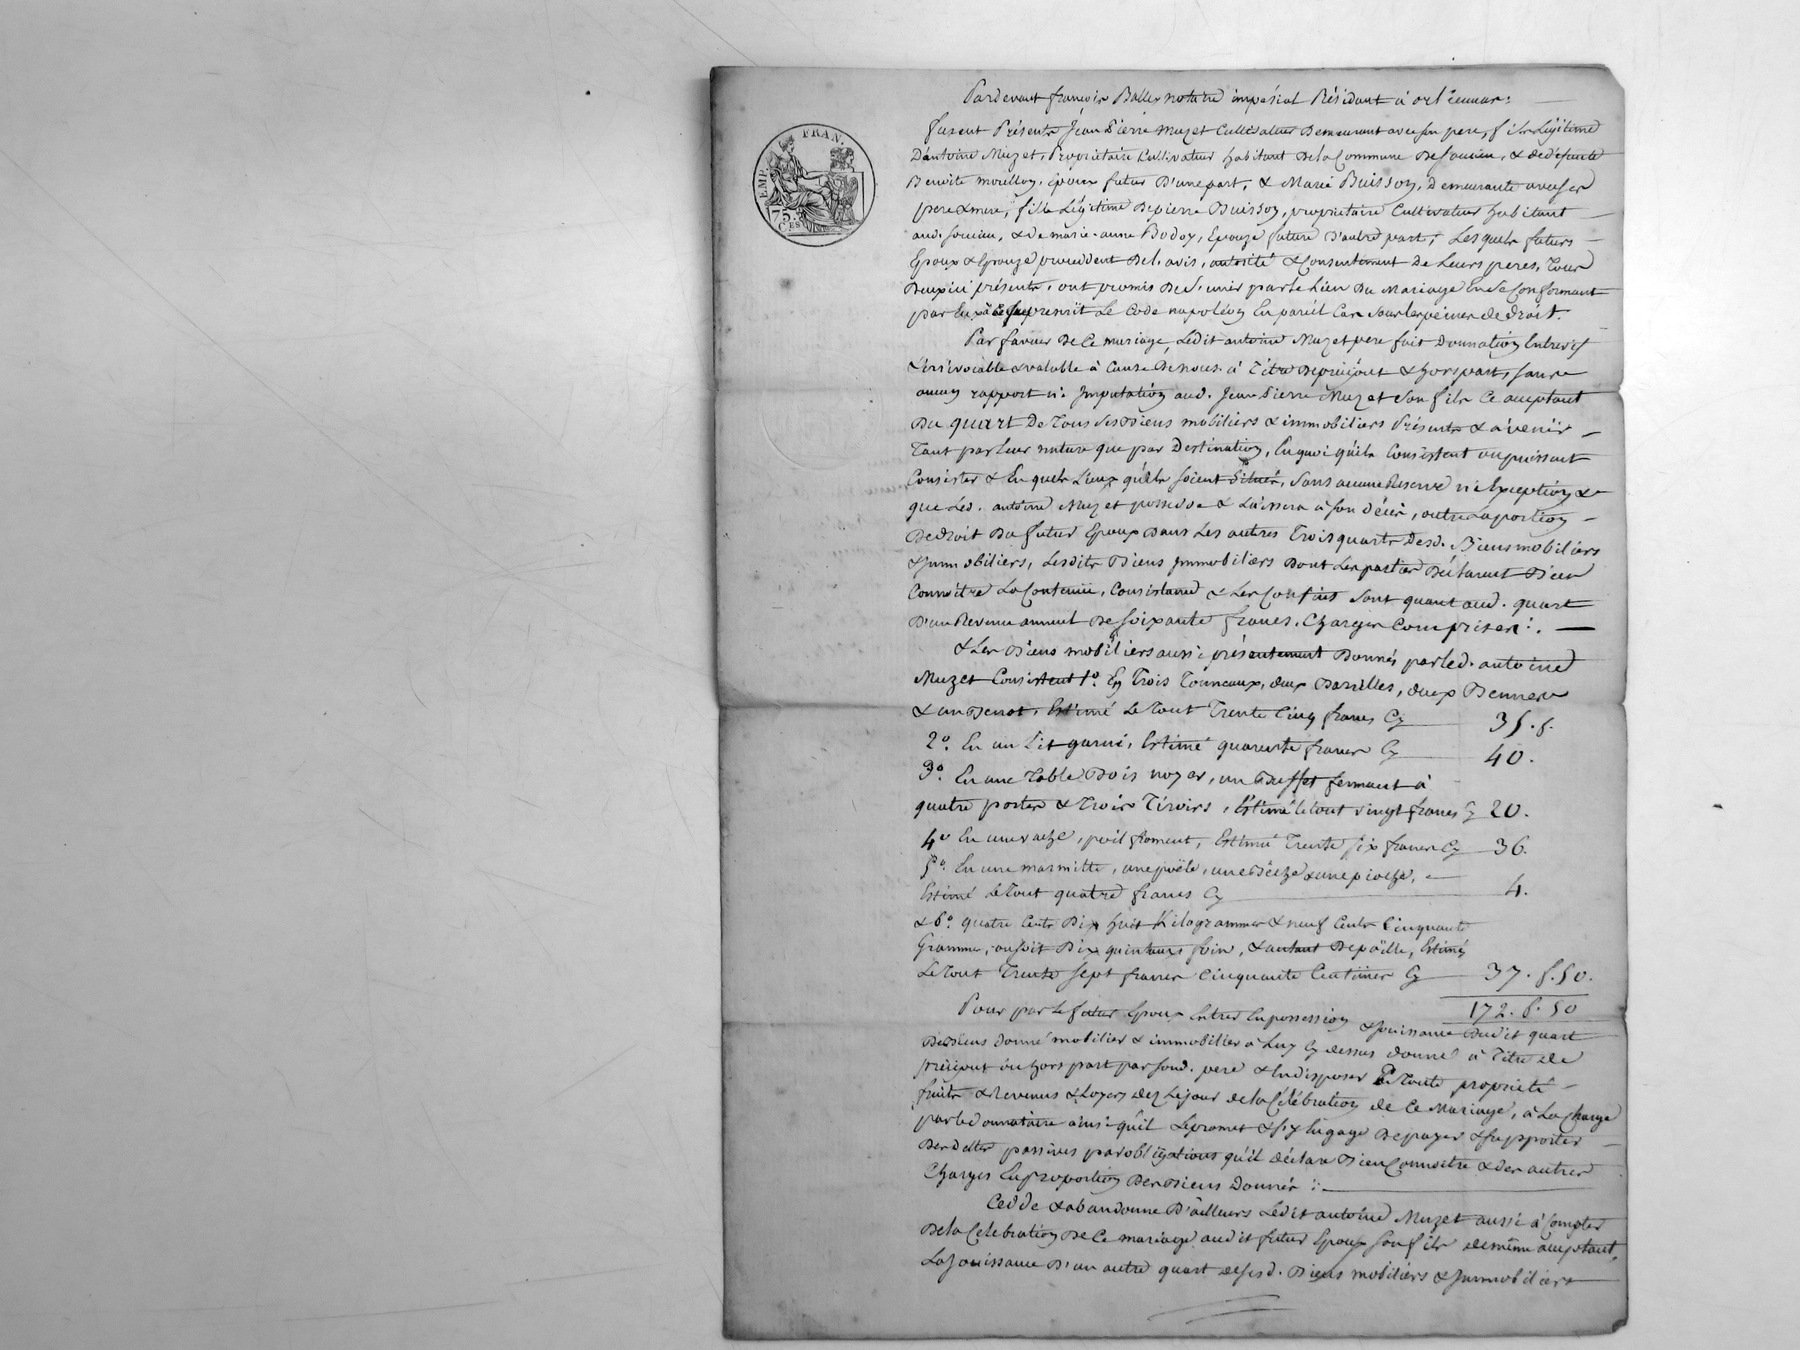 Pardevant françois Balley notaire impérial Résidant à orliennas :
EMP. FRAN.
75.
CES
furent Présents Jean Pierre Muzet Cultivateur Demeurant avec son pere, fils Légitime
D'antoine Muzet, Propriétaire Cultivateur habitant De la Commune De Soucieu, & de défunte
Benoite mouillon, Epoux futur D'une part, & Marie Buisson, Demeurante avec ses
pere & mere, fille Légitime De pierre Buisson, propriétaire Cultivateur habitant
aud. Soucieu, & de marie-anne Bodoy, Epouze future D'autre part ; Lesquels futurs
Epoux & Epouze proceddent De L'avis, autorité & Consentement De Leurs peres, Tous
Deux ici présents, ont promis De S'unir par le Lien Du Mariage En Se Conformant
par Eux à ce que prescrit Le Code napoléon En pareil Cas sous les peines de droit.
Par faveur De Ce mariage, Ledit antoine Muzet pere fait Donnation Entrevifs
& irrévocable & valable à Cause De noces à Titre De préciput & hors part, sans
aucun rapport ni Imputation aud. Jean Pierre Muzet Son fils Ce acceptant
Du quart De Tous Ses Biens mobiliers & immobiliers Présents & à venir
Tant par Leur nature que par Destination, En quoi qu'ils Consistent ou puissent
Consister & En quels Lieux qu'ils soient Situés, Sans aucune Reserve ni Exception &
que Led. antoine Muzet possede & Laissera à Son décès, outre La portion
De droit Du futur Epoux Dans Les autres Trois quarts Desd. Biens mobiliers
& Immobiliers, Lesdits Biens Immobiliers Dont Les parties Déclarent Bien
Connoitre La Contenüe, Consistance & Les Confins Sont quant aud. quart
D'un Revenu annuel De soixante francs, Charges Comprises :.
& Les Biens mobiliers aussi présentement Donnés par led. antoine
Muzet Consistent 1o. En Trois Tonneaux, deux Barilles, deux Bennes
& un Benot, Estimé Le Tout Trente Cinq francs Cy 35. f.
2o. En un Lit garni, Estimé quarante francs Cy 40.
3o. En une Table Bois noyer, un Buffet fermant à
quatre portes & Trois Tiroirs, Estimé le tout vingt francs Cy 20.
4o En une vache, poil froment, Estimé Trente six francs Cy 36.
5o. En une marmitte, une poële, une Bêche & une pioche,
Estimé Le Tout quatre francs Cy 4.
& 6o. quatre Cents Dix huit Kilogrammes & neuf Cents Cinquante
Grammes, ou soit Dix quintaux foin, & autant De paille, Estimés
Le Tout Trente Sept francs Cinquante Centimes Cy 37. f. 50.
172. f. 50
Pour par Le futur Epoux Entrer En possession & Jouissance Dudit quart
De Biens Donné mobilier & immobilier à Luy Cy dessus donné à Titre de
préciput ou hors part par Sond. pere & En disposer En Toute propriété
fruits & Revenus & Loyers dez Le jour de la Célébration de Ce Mariage, à La Charge
par Le donnataire ainsi qu'il Le promet & s'y Engage De payer & supporter
Des dettes passives par obligations qu'il déclare Bien Connoitre & des autres
Charges En proportion Des Biens Donnés :.
Cedde & abandonne D'ailleurs Ledit antoine Muzet aussi à Compter
De la Celebration De Ce mariage audit futur Epoux Son fils de même acceptant,
La Jouissance D'un autre quart de sesd. Biens mobiliers & Immobiliers